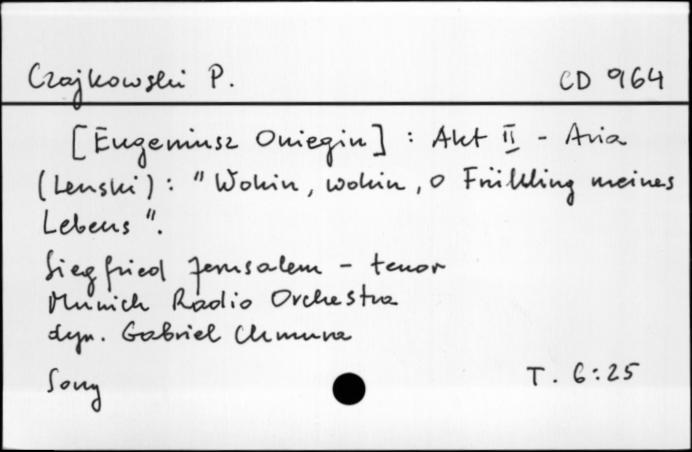 Czajkowski P. CD 964
[Eugeniusz Oniegin] : Akt II - Aria
(Lenski) : "Wohin, wohin, o Frühling meines
Lebens".
Siegfried Jerusalem - tenor
Munich Radio Orchestra
dyr. Gabriel Chmura
Sony T. 6:25